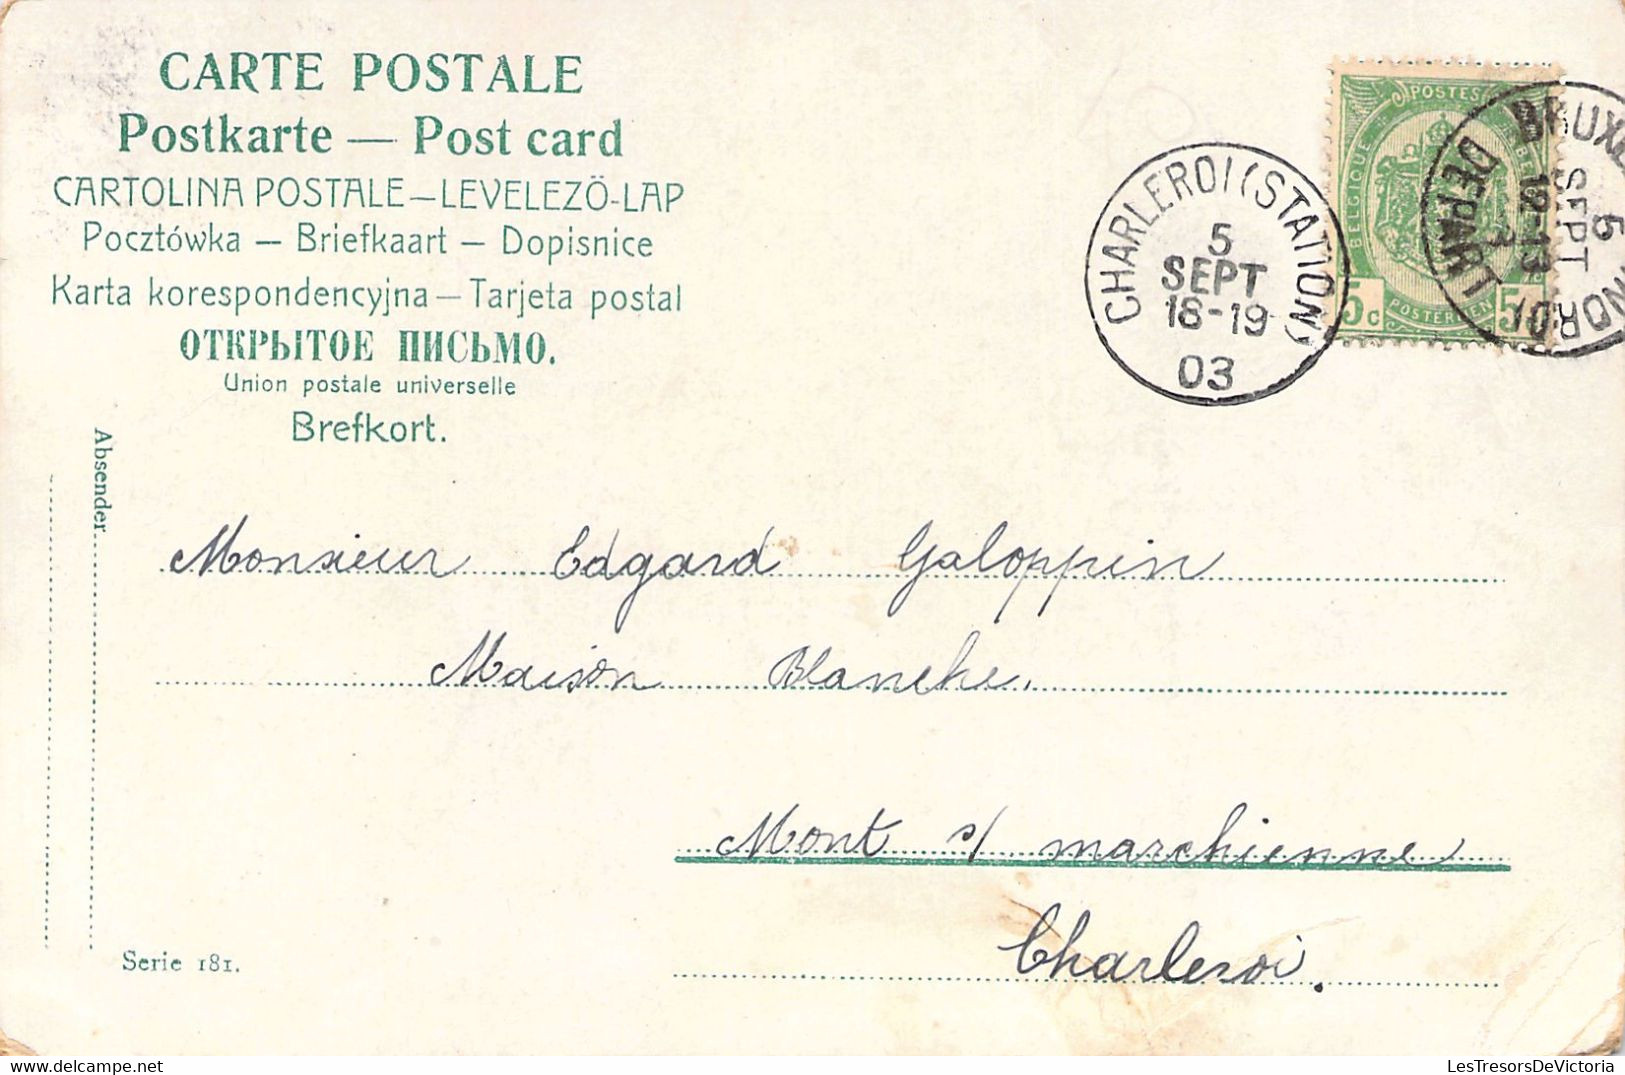 CARTE POSTALE
Postkarte — Post card
CARTOLINA POSTALE — LEVELEZÖ-LAP
Pocztówka — Briefkaart — Dopisnice
Karta korespondencyjna — Tarjeta postal
ОТКРЫТОЕ ПИСЬМО.
Union postale universelle
Brefkort.
CHARLEROI (STATION)
5
SEPT
18-19
03
POSTES
BELGIQUE
5c
POSTERIJEN
5
(NORD)
5
SEPT
12-13
DEPART
Absender
Monsieur Edgard Galoppin
Maison Blanche.
Mont s/ marchienne
Charleroi.
Serie 181.
delcampe.net
LesTresorsDeVictoria